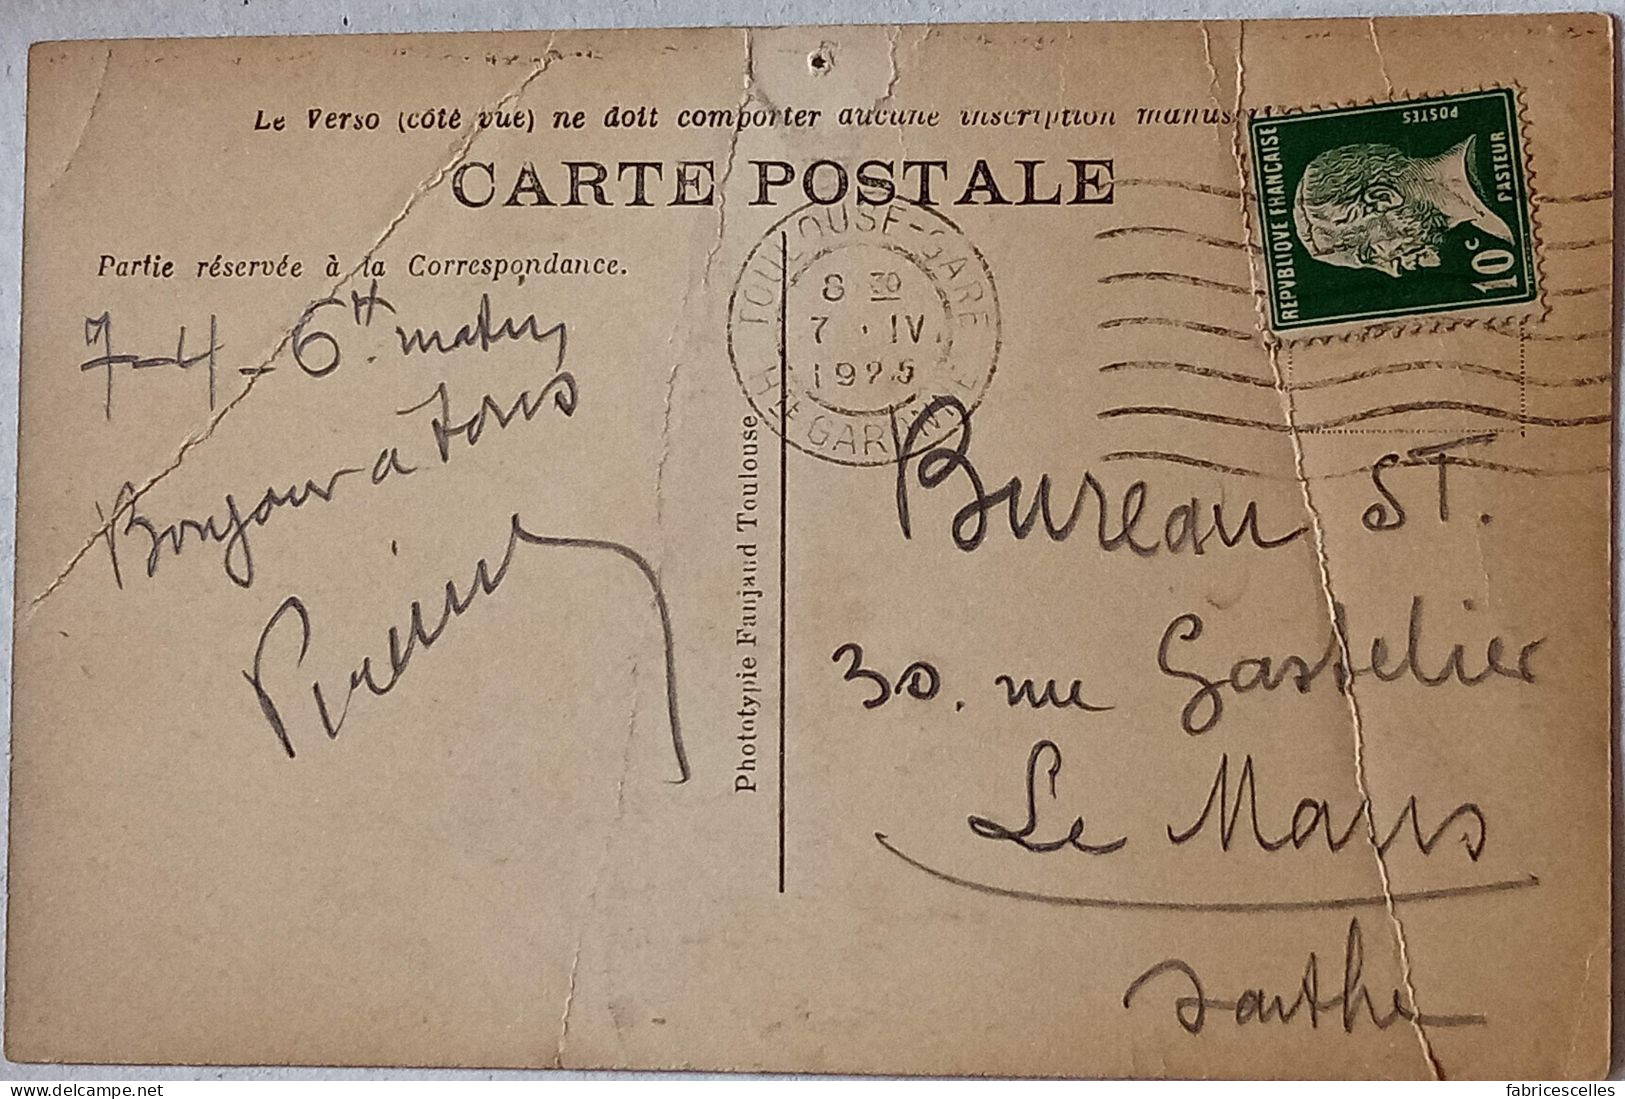 Le Verso (côté vue) ne doit comporter aucune inscription
CARTE POSTALE
Partie réservée à la Correspondance.
7-4-6H. matin
Bonjour a tous
Phototypie Fanjaud Toulouse
TOULOUSE-GARE
8 30
7 · IV
1925
HTE GARONNE
REPUBLIQUE FRANÇAISE
POSTES
PASTEUR
10c
Bureau ST.
30. rue Gastelier
Le Mans
Sarthe
fabricescelles